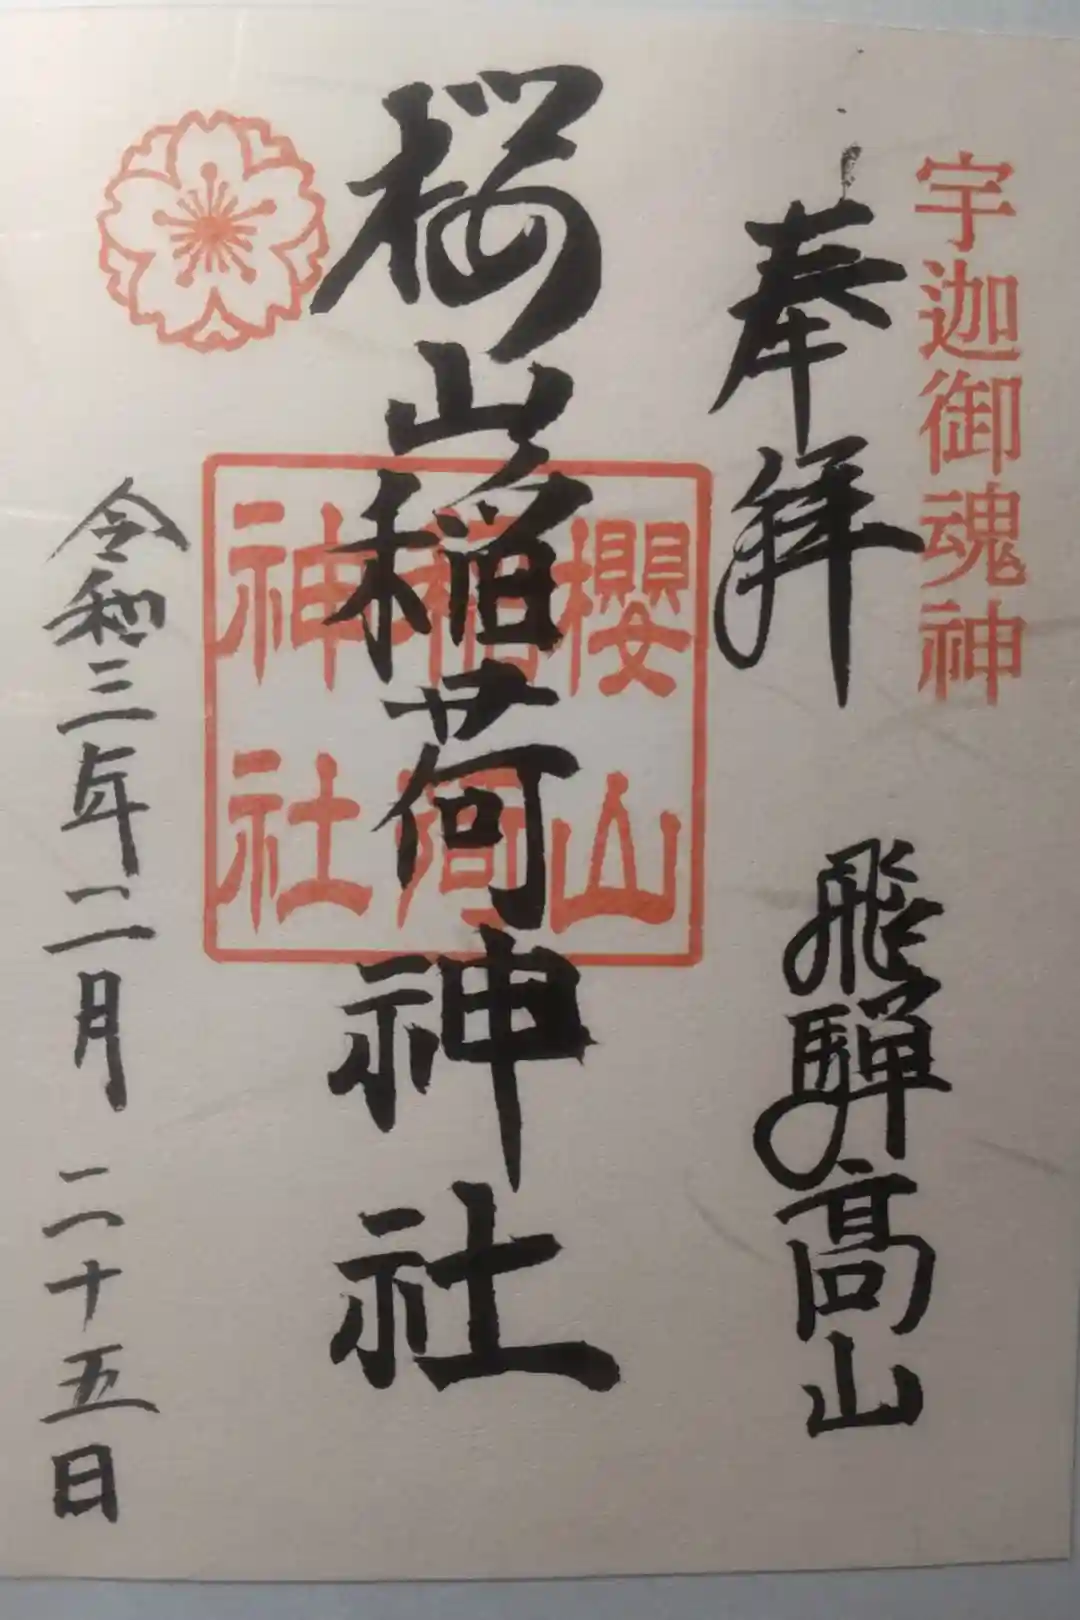 宇迦御魂神
奉拝　飛騨高山
桜山稲荷神社
櫻山
稲荷
神社
令和三年二月二十五日